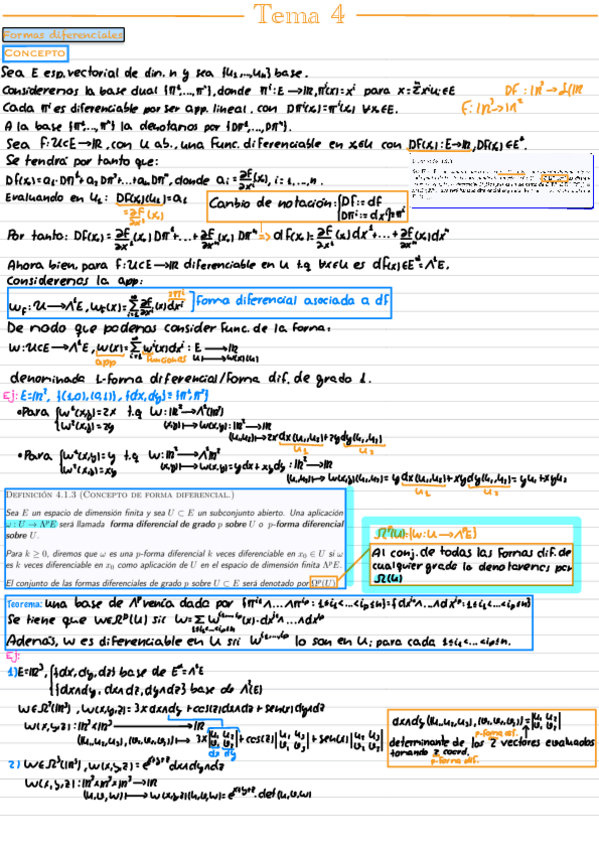 Tema 4
Formas diferenciales
CONCEPTO
Sea E esp. vectorial de dim. n y sea {u₁,...,uₙ} base.
Consideremos la base dual {π¹,...,πⁿ}, donde πⁱ: E → ℝ, πⁱ(x)=xⁱ para x=Σxⁱuᵢ∈E
Cada πⁱ es diferenciable por ser app. lineal. con Dπⁱ(x)=πⁱ(x) ∀x∈E.
A la base {π¹,...,πⁿ} la denotamos por {Dπ¹,...,Dπⁿ}.
Sea f: U⊂E → ℝ, con U ab., una func. diferenciable en x₀∈U con Df(x₀): E → ℝ, Df(x₀)∈E*.
Se tendrá por tanto que:
Df(x₀)=a₁·Dπ¹+a₂Dπ²+...+aₙDπⁿ, donde aᵢ=∂f/∂xⁱ(x₀), i=1,...,n.
Evaluando en u₁: Df(x₀)(u₁)=a₁
=∂f/∂x¹(x₀)
Cambio de notación: {Df:=df
Dπⁱ:=dxⁱ=πⁱ
Por tanto: Df(x₀)=∂f/∂x¹(x₀)Dπ¹+...+∂f/∂xⁿ(x₀)Dπⁿ => df(x₀)=∂f/∂x¹(x₀)dx¹+...+∂f/∂xⁿ(x₀)dxⁿ
Ahora bien, para f: U⊂E → ℝ diferenciable en U t.q ∀x∈U es df(x)∈E*=Λ¹E.
Consideremos la app:
ω_f: U → Λ¹E, ω_f(x)=Σ ∂f/∂xⁱ(x)dxⁱ ] forma diferencial asociada a df
De modo que podemos consider func. de la forma:
ω: U⊂E → Λ¹E, ω(x)=Σωⁱ(x)dxⁱ: E → ℝ
app funciones u → ω(x)(u)
denominada 1-forma diferencial/forma dif. de grado 1.
Ej: E=ℝ², {(1,0),(0,1)}, {dx,dy}={π¹,π²}
•Para {ω¹(x,y)=2x t.q ω: ℝ² → Λ¹(ℝ²)
ω²(x,y)=2y (x,y) → ω(x,y): ℝ² → ℝ
(u₁,u₂) → 2xdx(u₁,u₂)+2ydy(u₁,u₂)
u₁ u₂
•Para {ω¹(x,y)=y t.q ω: ℝ² → Λ¹ℝ²
ω²(x,y)=xy (x,y) → ω(x,y)=ydx+xydy: ℝ² → ℝ
(u₁,u₂) → ω(x,y)(u₁,u₂)=ydx(u₁,u₂)+xydy(u₁,u₂)=yu₁+xyu₂
u₁ u₂
DEFINICIÓN 4.1.3 (CONCEPTO DE FORMA DIFERENCIAL.)
Sea E un espacio de dimensión finita y sea U ⊂ E un subconjunto abierto. Una aplicación
ω : U → ΛᵖE será llamada forma diferencial de grado p sobre U o p-forma diferencial
sobre U.
Para k ≥ 0, diremos que ω es una p-forma diferencial k veces diferenciable en x₀ ∈ U si ω
es k veces diferenciable en x₀ como aplicación de U en el espacio de dimensión finita ΛᵖE.
El conjunto de las formas diferenciales de grado p sobre U ⊂ E será denotado por Ωᵖ(U)
Ωᵖ(U):{ω: U → ΛᵖE}
Al conj. de todas las formas dif. de
cualquier grado lo denotaremos por
Ω(U)
Teorema: una base de Λᵖ venía dada por {πⁱ¹∧...∧πⁱᵖ: 1≤i₁<...<iₚ≤n}={dxⁱ¹∧...∧dxⁱᵖ: 1≤i₁<...<iₚ≤n}
Se tiene que ω∈Ωᵖ(U) sii ω=Σ ωⁱ¹···ⁱᵖ(x)·dxⁱ¹∧...∧dxⁱᵖ
1≤i₁<...<iₚ≤n
Además, ω es diferenciable en U sii ωⁱ¹···ⁱᵖ lo son en U; para cada 1≤i₁<...<iₚ≤n.
Ej:
1) E=ℝ³, {{dx,dy,dz} base de E*=Λ¹E
{dx∧dy, dx∧dz, dy∧dz} base de Λ²(E)
ω∈Ω²(ℝ³), ω(x,y,z)=3xdx∧dy+cos(z)dx∧dz+sen(x)dy∧dz
ω(x,y,z): ℝ³×ℝ³ → ℝ
dx∧dy(u₁,u₂,u₃),(v₁,v₂,v₃))=|u₁ u₂ v₁ v₂|
p-forma dif.
determinante de los 2 vectores evaluados
tomando 2 coord.
p-forma dif.
dx dy
2) ω∈Ω³(ℝ³), ω(x,y,z)=eˣ⁺ʸ⁺ᶻdx∧dy∧dz
ω(x,y,z): ℝ³×ℝ³×ℝ³ → ℝ
(u,v,w) → ω(x,y,z)(u,v,w)=eˣ⁺ʸ⁺ᶻ·det(u,v,w)